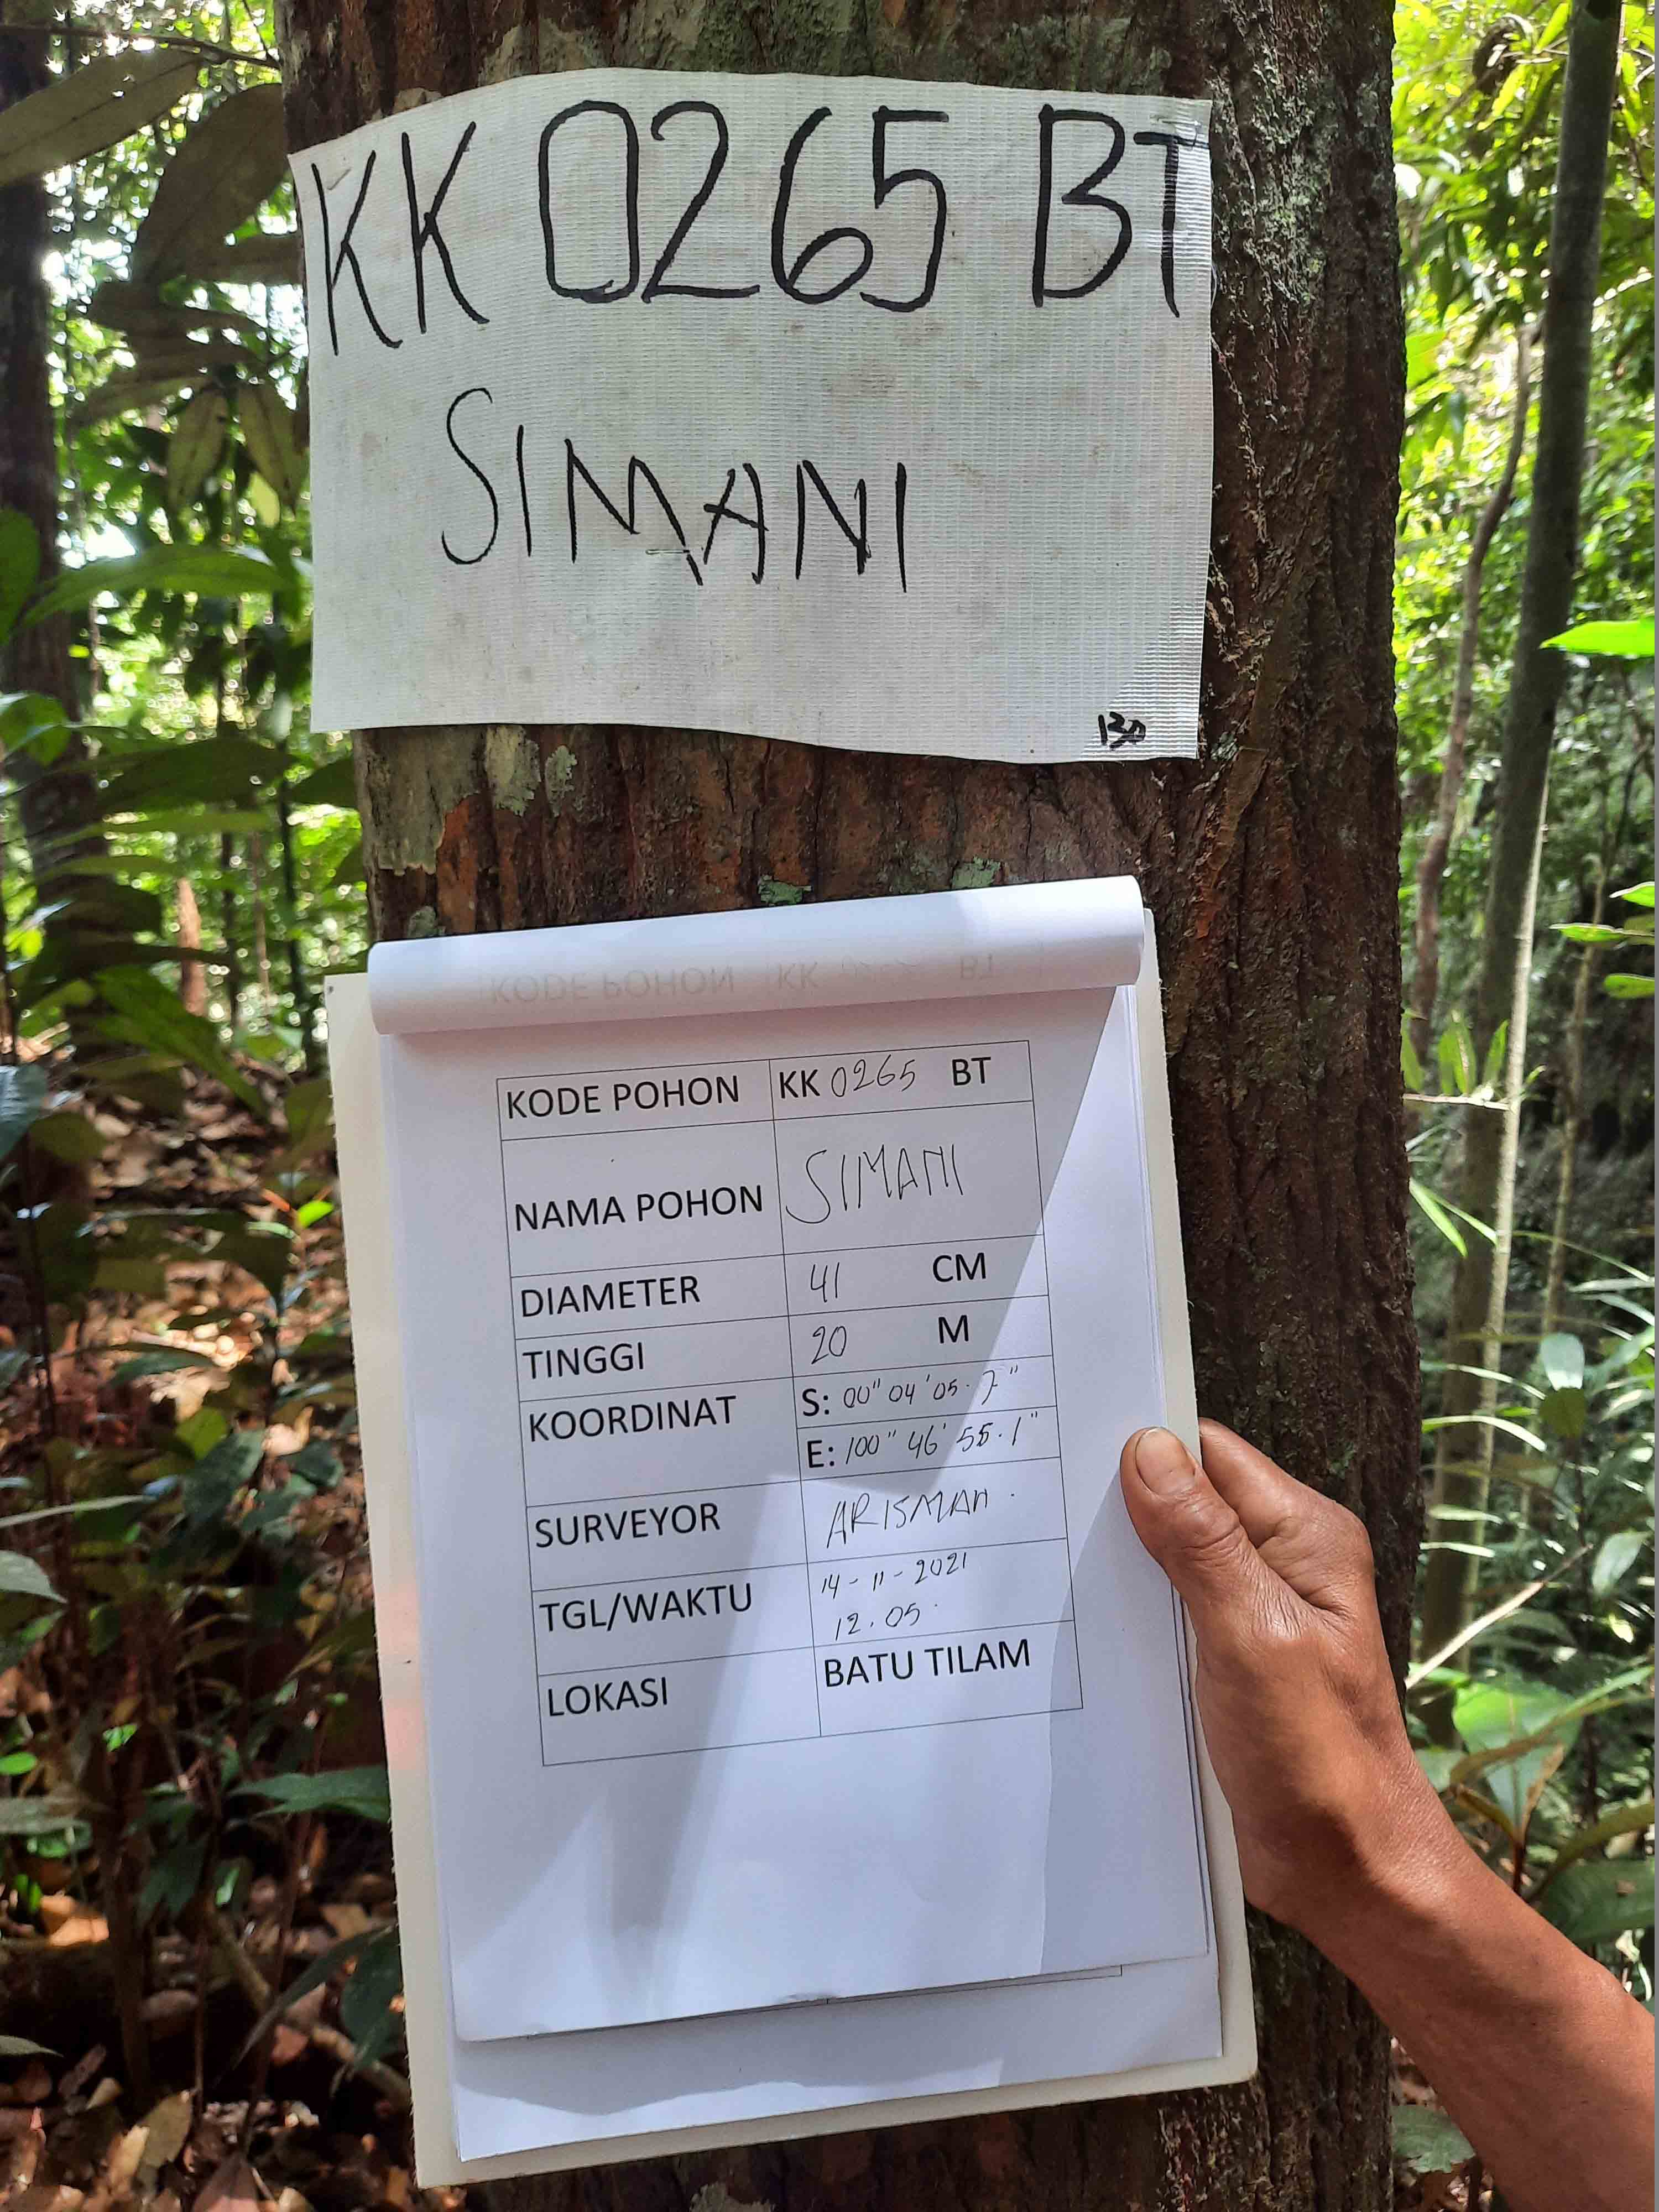 KK 0265 BT
SIMANI
130
KODE POHON KK 0265 BT
NAMA POHON SIMANI
DIAMETER 41 CM
TINGGI 20 M
KOORDINAT S: 00" 04 ' 05. 7 "
E: 100" 46' 55.1"
SURVEYOR ARISMAN.
TGL/WAKTU 14-11-2021
12.05.
LOKASI BATU TILAM